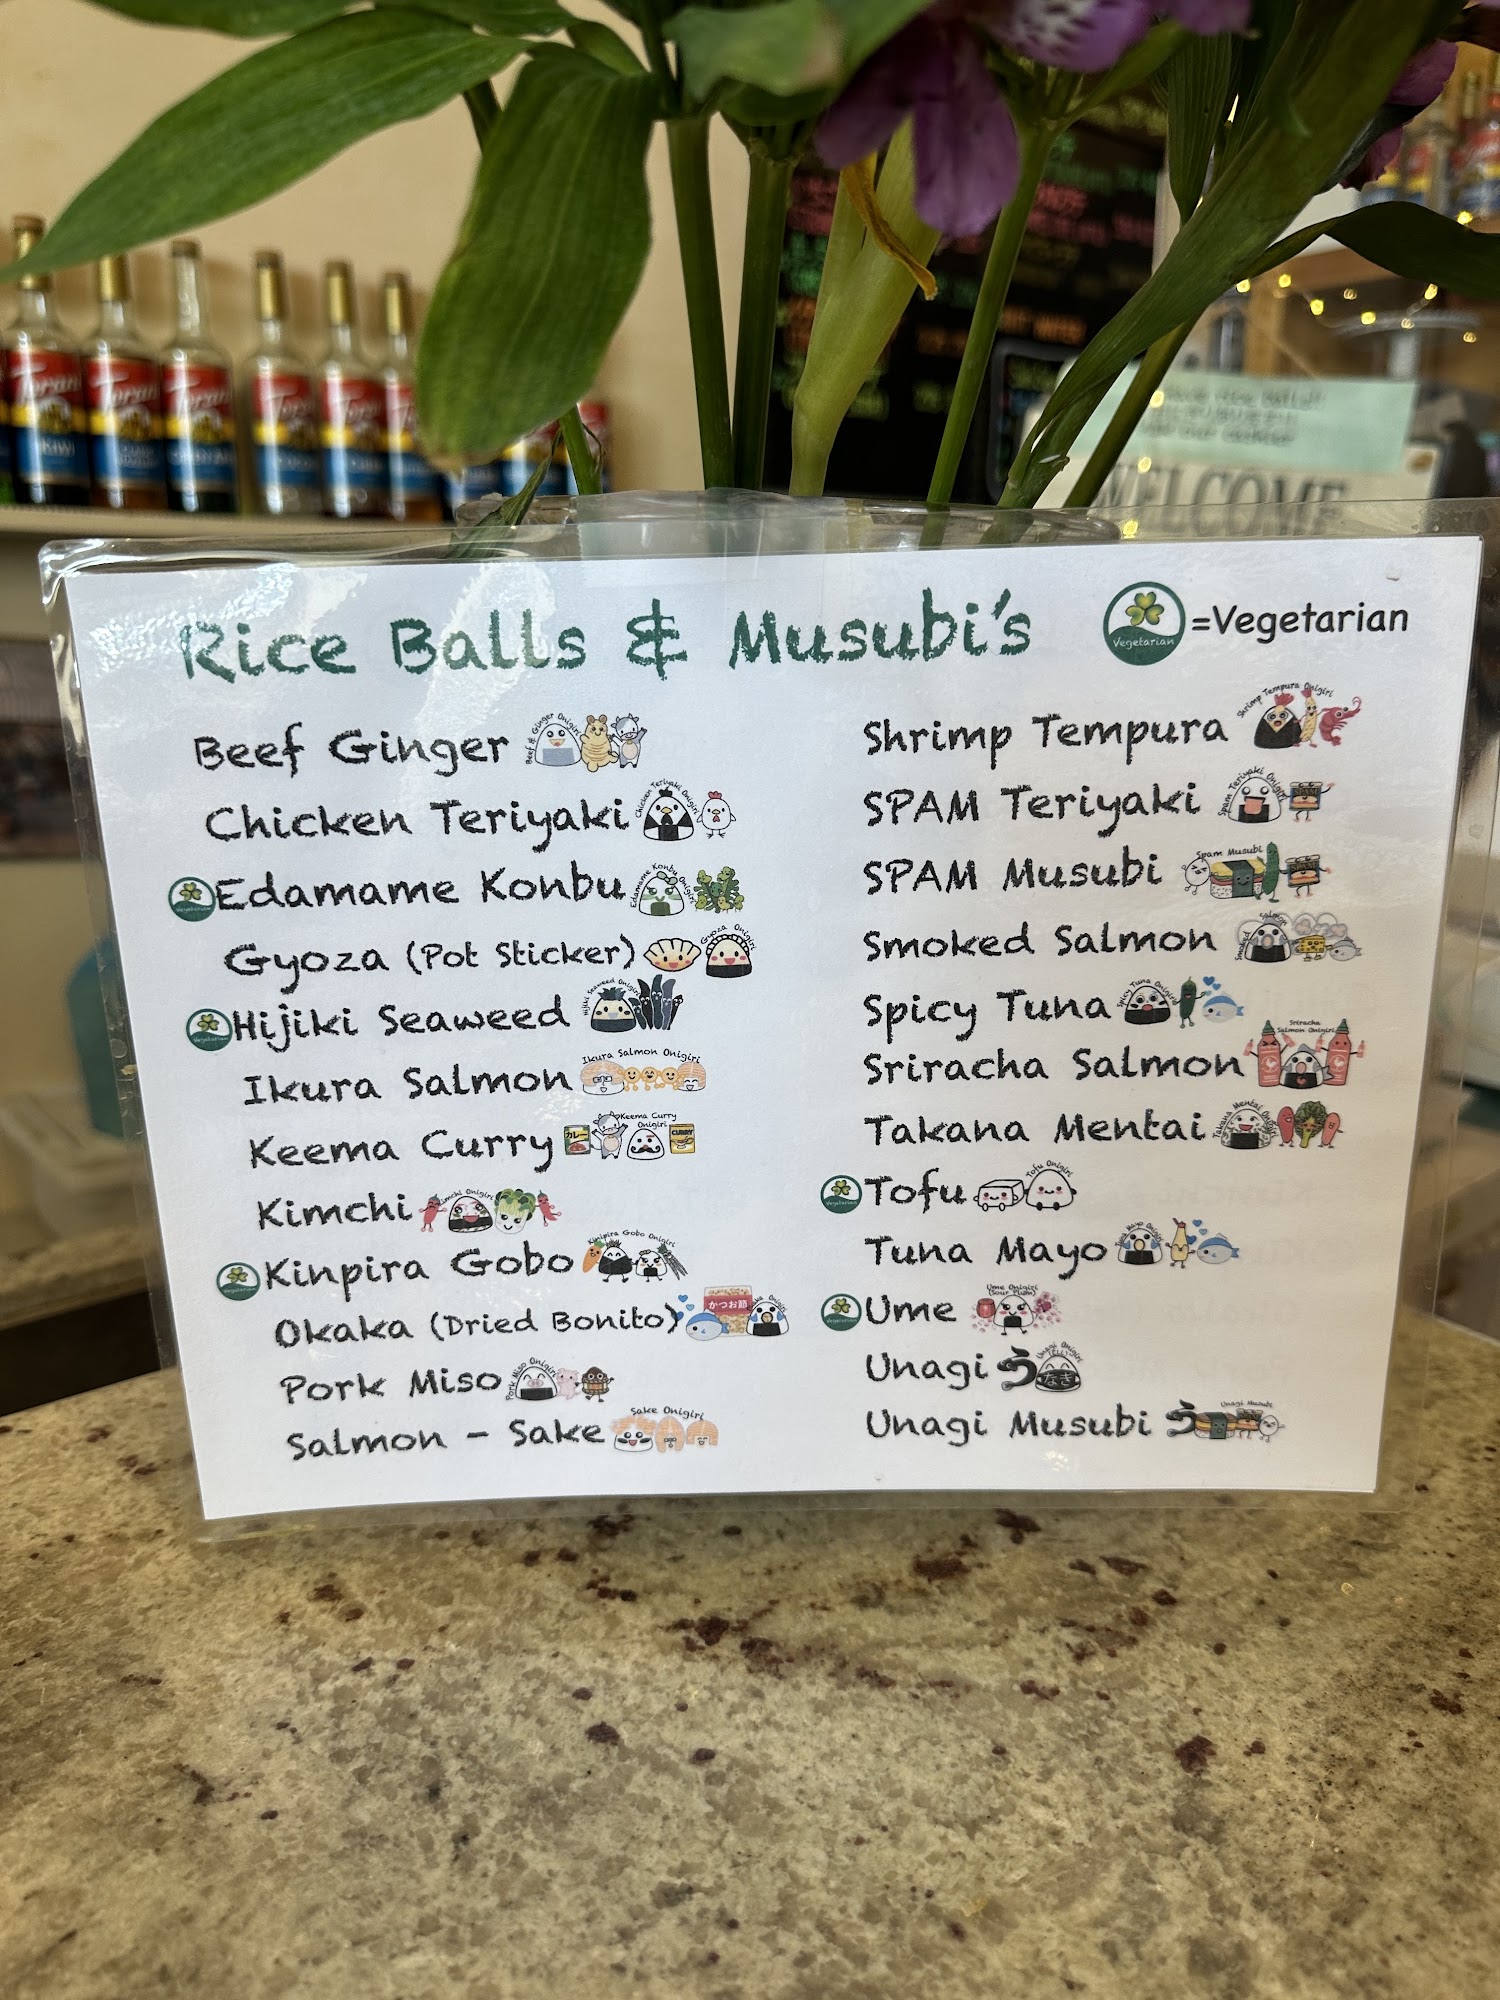 Torani
Torani
Torani
KIWI
WELCOME
Rice Balls & Musubi's
Vegetarian
=Vegetarian
Beef Ginger
Beef & Ginger Onigiri
Chicken Teriyaki
Chicken Teriyaki Onigiri
Edamame Konbu
Edamame Konbu Onigiri
Gyoza (Pot Sticker)
Gyoza Onigiri
Hijiki Seaweed
Hijiki Seaweed Onigiri
Ikura Salmon
Ikura Salmon Onigiri
Keema Curry
カレー
Keema Curry
Onigiri
CURRY
Kimchi
Kimchi Onigiri
Kinpira Gobo
Kinpira Gobo Onigiri
Okaka (Dried Bonito)
かつお節
Pork Miso
Pork Miso Onigiri
Salmon - Sake
Sake Onigiri
Shrimp Tempura
Shrimp Tempura Onigiri
SPAM Teriyaki
Spam Teriyaki Onigiri
SPAM Musubi
Spam Musubi
Smoked Salmon
Smoked Salmon
Spicy Tuna
Spicy Tuna Onigiri
Sriracha Salmon
Sriracha
Salmon Onigiri
Takana Mentai
Takana Mentai Onigiri
Tofu
Tofu Onigiri
Tuna Mayo
Tuna Mayo Onigiri
Ume
Ume Onigiri
(Sour Plum)
Unagi
う
Unagi Onigiri
なぎ
Unagi Musubi
う
Unagi Musubi